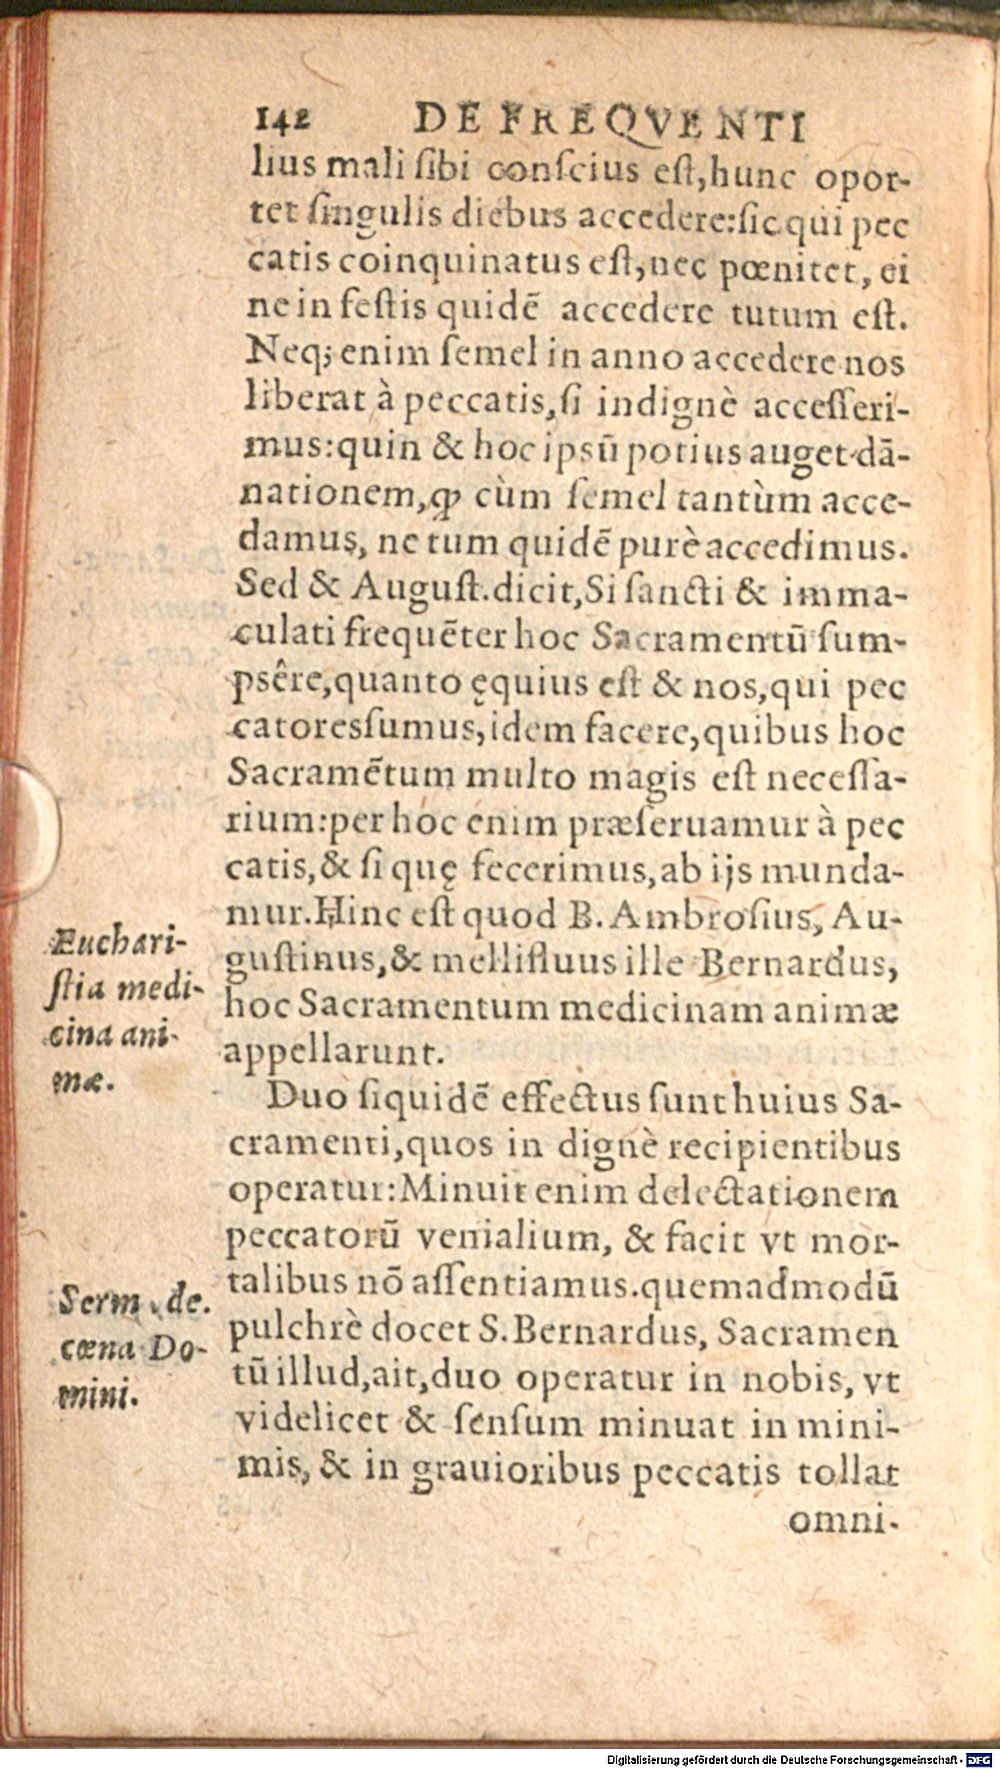 142 DE FREQVENTI
lius mali sibi conscius est, hunc opor-
tet singulis diebus accedere: sic qui pec
catis coinquinatus est, nec pœnitet, ei
ne in festis quidẽ accedere tutum est.
Neq; enim semel in anno accedere nos
liberat à peccatis, si indignè accesseri-
mus: quin & hoc ipsũ potius auget dã-
nationem, ꝙ cùm semel tantùm acce-
damus, ne tum quidẽ purè accedimus.
Sed & August. dicit, Si sancti & imma-
culati frequẽter hoc Sacramentũ sum-
psêre, quanto ęquius est & nos, qui pec
catores sumus, idem facere, quibus hoc
Sacramẽtum multo magis est necessa-
rium: per hoc enim præseruamur à pec
catis, & si quę fecerimus, ab ijs munda-
mur. Hinc est quod B. Ambrosius, Au-
gustinus, & mellifluus ille Bernardus,
hoc Sacramentum medicinam animæ
appellarunt.
Euchari-
stia medi-
cina ani-
mæ.
Duo siquidẽ effectus sunt huius Sa-
cramenti, quos in dignè recipientibus
operatur: Minuit enim delectationem
peccatorũ venialium, & facit vt mor-
talibus nõ assentiamus. quemadmodũ
pulchrè docet S. Bernardus, Sacramen
tũ illud, ait, duo operatur in nobis, vt
videlicet & sensum minuat in mini-
mis, & in grauioribus peccatis tollat
Serm. de.
cœna Do-
mini.
omni-
Digitalisierung gefördert durch die Deutsche Forschungsgemeinschaft - DFG